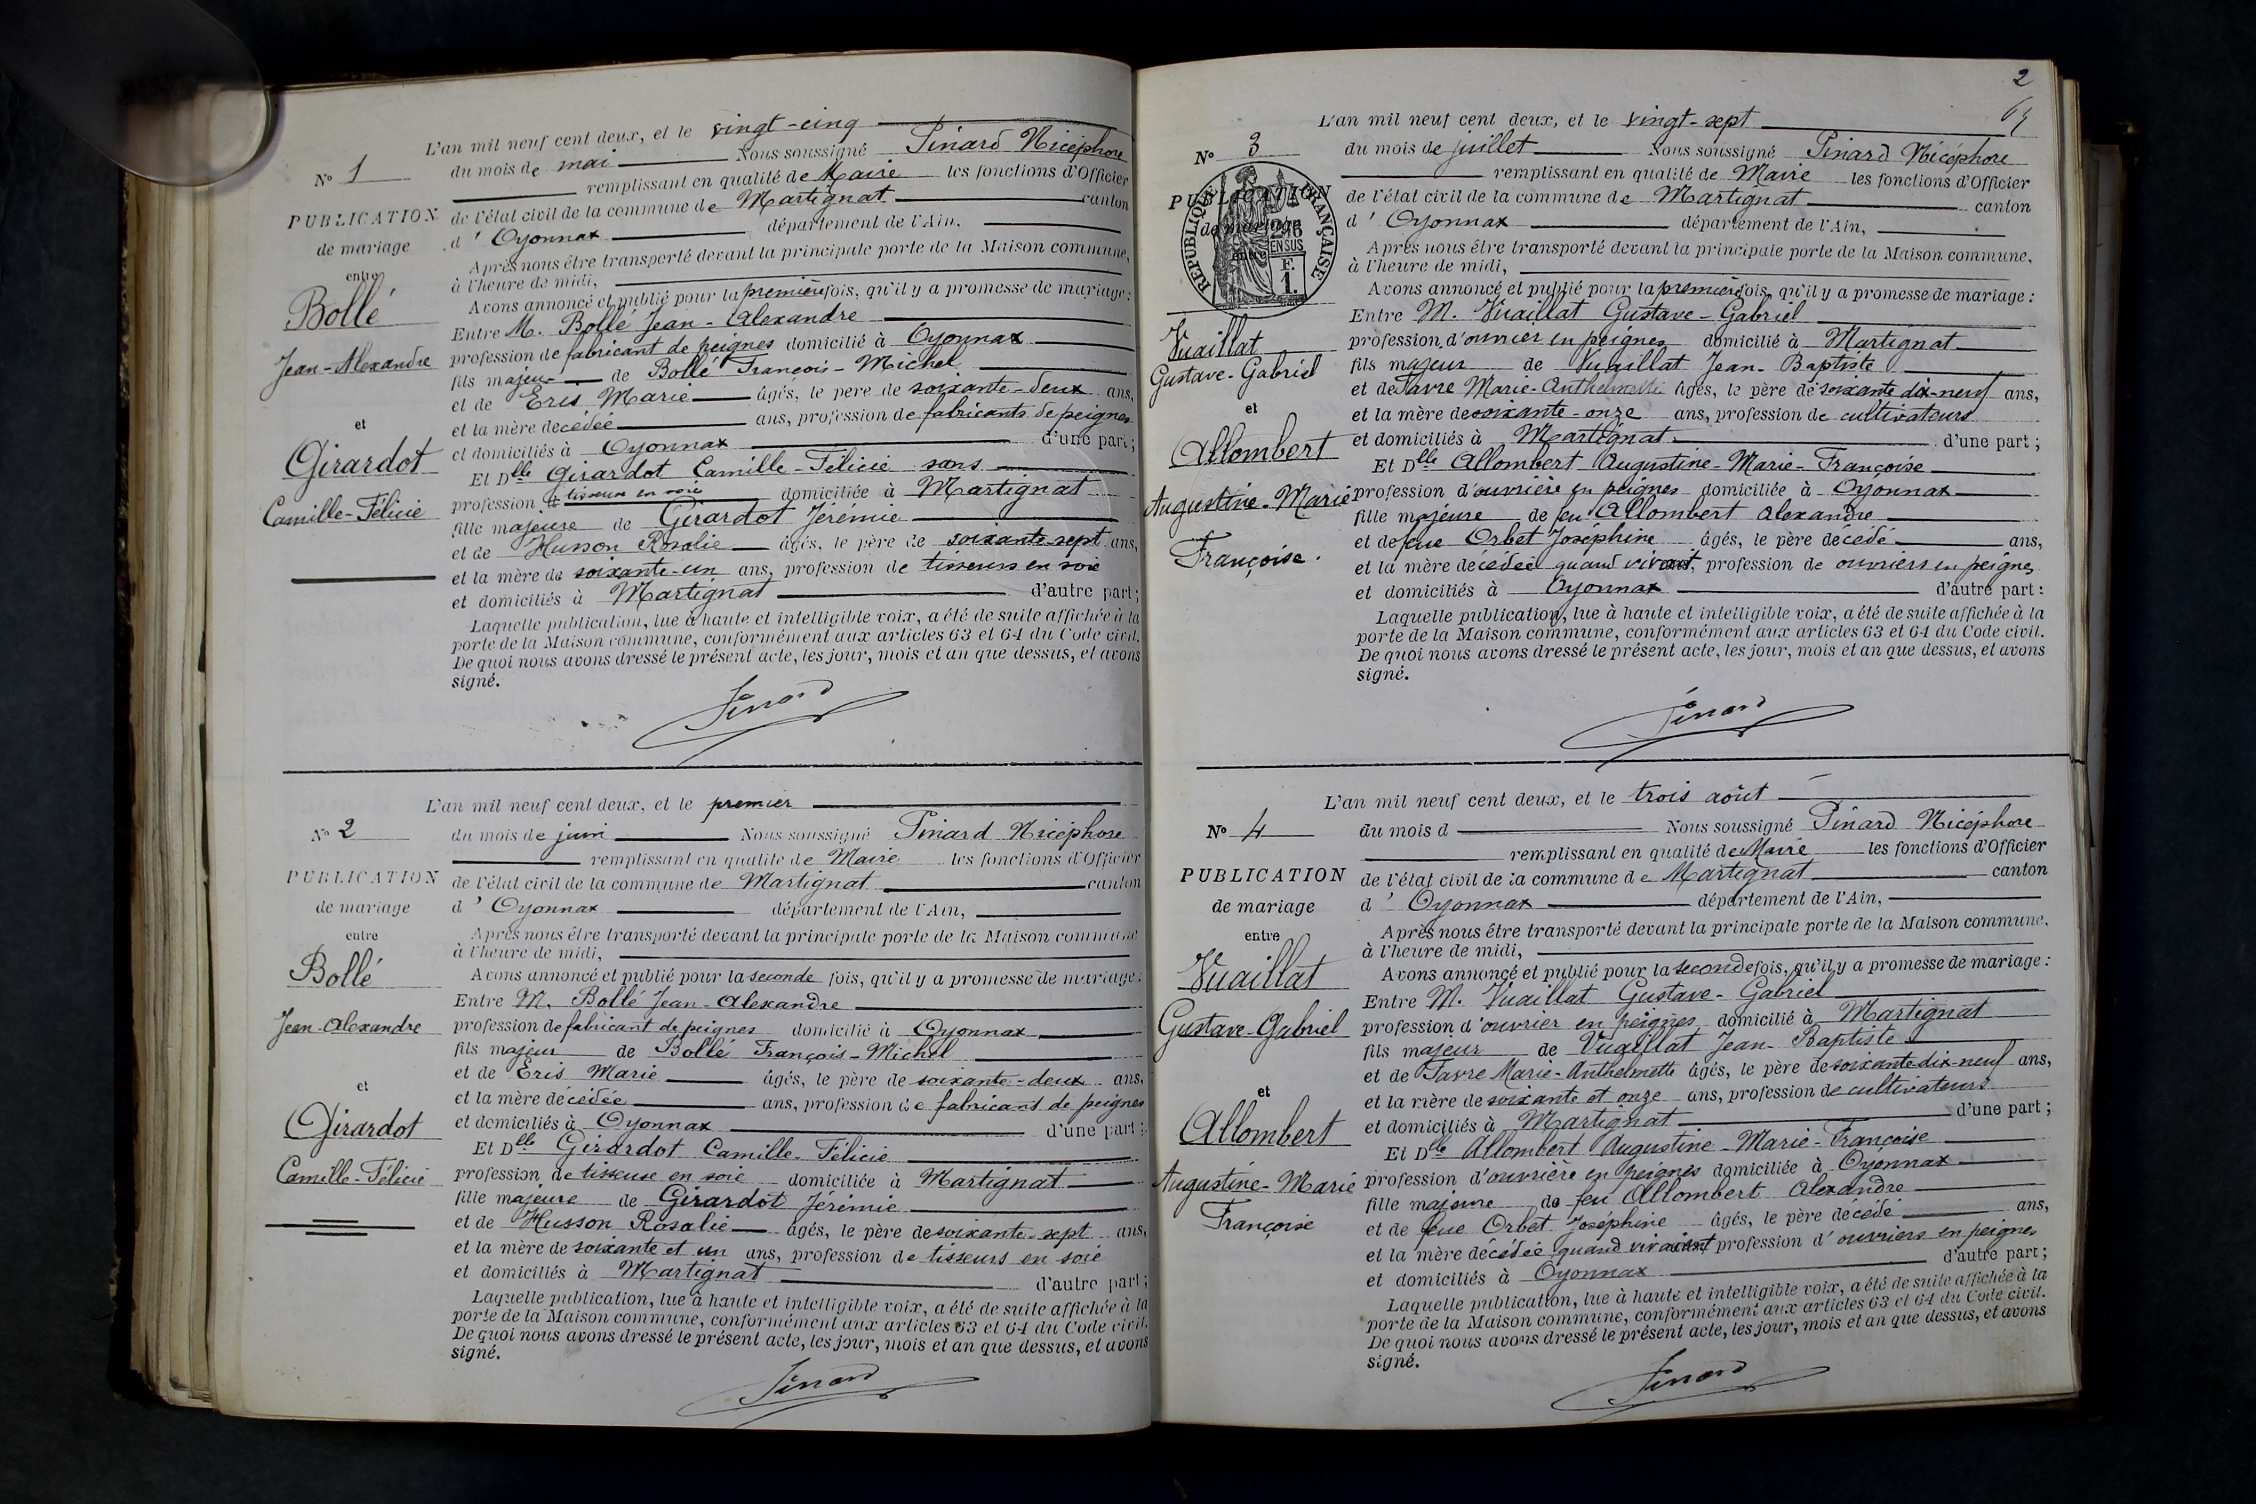 L'an mil neuf cent deux, et le vingt-cinq
Nº 1
du mois de mai Nous soussigné Pinard Nicéphore
remplissant en qualité de Maire les fonctions d'Officier
PUBLICATION
de l'état civil de la commune de Martignat canton
de mariage
d'Oyonnax département de l'Ain,
entre
Après nous être transporté devant la principale porte de la Maison commune,
à l'heure de midi,
Bollé
Avons annoncé et publié pour la première fois, qu'il y a promesse de mariage:
Entre M. Bollé Jean-Alexandre
Jean-Alexandre
profession de fabricant de peignes domicilié à Oyonnax
fils majeur de Bollé François-Michel
et de Eris Marie âgés, le père de soixante-deux ans,
et la mère decédée ans, profession de fabricants de peignes
et
et domiciliés à Oyonnax d'une part;
Girardot
Et Dlle Girardot Camille-Félicie sans
profession de tisseuse en soie domiciliée à Martignat
Camille-Félicie
fille majeure de Girardot Jérémie
et de Husson Rosalie âgés, le père de soixante-sept ans,
et la mère de soixante-un ans, profession de tisseurs en soie
et domiciliés à Martignat d'autre part;
Laquelle publication, lue à haute et intelligible voix, a été de suite affichée à la
porte de la Maison commune, conformément aux articles 63 et 64 du Code civil.
De quoi nous avons dressé le présent acte, les jour, mois et an que dessus, et avons
signé.
Pinard
L'an mil neuf cent deux, et le premier
Nº 2
du mois de juin Nous soussigné Pinard Nicéphore
remplissant en qualité de Maire les fonctions d'Officier
PUBLICATION
de l'état civil de la commune de Martignat canton
de mariage
d'Oyonnax département de l'Ain,
entre
Après nous être transporté devant la principale porte de la Maison commune
à l'heure de midi,
Bollé
Avons annoncé et publié pour la seconde fois, qu'il y a promesse de mariage:
Entre M. Bollé Jean-Alexandre
Jean-Alexandre
profession de fabricant de peignes domicilié à Oyonnax
fils majeur de Bollé François-Michel
et de Eris Marie âgés, le père de soixante-deux ans,
et
et la mère décédée ans, profession de fabricant de peignes
et domiciliés à Oyonnax d'une part;
Girardot
Et Dlle Girardot Camille-Félicie
Camille-Félicie
profession de tisseuse en soie domiciliée à Martignat
fille majeure de Girardot Jérémie
et de Husson Rosalie âgés, le père de soixante-sept ans,
et la mère de soixante et un ans, profession de tisseurs en soie
et domiciliés à Martignat d'autre part;
Laquelle publication, lue à haute et intelligible voix, a été de suite affichée à la
porte de la Maison commune, conformément aux articles 63 et 64 du Code civil.
De quoi nous avons dressé le présent acte, les jour, mois et an que dessus, et avons
signé.
Pinard
2
L'an mil neuf cent deux, et le vingt-sept
Nº 3
du mois de juillet Nous soussigné Pinard Nicéphore
remplissant en qualité de Maire les fonctions d'Officier
PUBLICATION
de l'état civil de la commune de Martignat canton
de mariage
d'Oyonnax département de l'Ain,
entre
RÉPUBLIQUE FRANÇAISE
EN SUS
F.
1.
Après nous être transporté devant la principale porte de la Maison commune,
à l'heure de midi,
Avons annoncé et publié pour la première fois, qu'il y a promesse de mariage:
Entre M. Vuaillat Gustave-Gabriel
Vuaillat
profession d'ouvrier en peignes domicilié à Martignat
Gustave-Gabriel
fils majeur de Vuaillat Jean-Baptiste
et de Favre Marie-Anthelmette âgés, le père de soixante dix-neuf ans,
et
et la mère de soixante-onze ans, profession de cultivateurs
et domiciliés à Martignat d'une part;
Allombert
Et Dlle Allombert Augustine-Marie-Françoise
Augustine-Marie
profession d'ouvrière en peignes domiciliée à Oyonnax
fille majeure de feu Allombert Alexandre
Françoise.
et de feue Orbet Joséphine âgés, le père décédé ans,
et la mère décédée quand vivait, profession de ouvriers en peignes
et domiciliés à Oyonnax d'autre part:
Laquelle publication, lue à haute et intelligible voix, a été de suite affichée à la
porte de la Maison commune, conformément aux articles 63 et 64 du Code civil.
De quoi nous avons dressé le présent acte, les jour, mois et an que dessus, et avons
signé.
Pinard
L'an mil neuf cent deux, et le trois août
Nº 4
du mois d Nous soussigné Pinard Nicéphore
remplissant en qualité de Maire les fonctions d'Officier
PUBLICATION
de l'état civil de la commune de Martignat canton
de mariage
d'Oyonnax département de l'Ain,
entre
Après nous être transporté devant la principale porte de la Maison commune,
à l'heure de midi,
Vuaillat
Avons annoncé et publié pour la seconde fois, qu'il y a promesse de mariage:
Entre M. Vuaillat Gustave-Gabriel
Gustave-Gabriel
profession d'ouvrier en peignes domicilié à Martignat
fils majeur de Vuaillat Jean-Baptiste
et de Favre Marie-Anthelmette âgés, le père de soixante dix-neuf ans,
et
et la mère de soixante et onze ans, profession de cultivateurs
et domiciliés à Martignat d'une part;
Allombert
Et Dlle Allombert Augustine-Marie-Françoise
Augustine-Marie
profession d'ouvrière en peignes domiciliée à Oyonnax
fille majeure de feu Allombert Alexandre
Françoise
et de feue Orbet Joséphine âgés, le père décédé ans,
et la mère décédée quand vivaient profession d'ouvriers en peignes
et domiciliés à Oyonnax d'autre part;
Laquelle publication, lue à haute et intelligible voix, a été de suite affichée à la
porte de la Maison commune, conformément aux articles 63 et 64 du Code civil.
De quoi nous avons dressé le présent acte, les jour, mois et an que dessus, et avons
signé.
Pinard